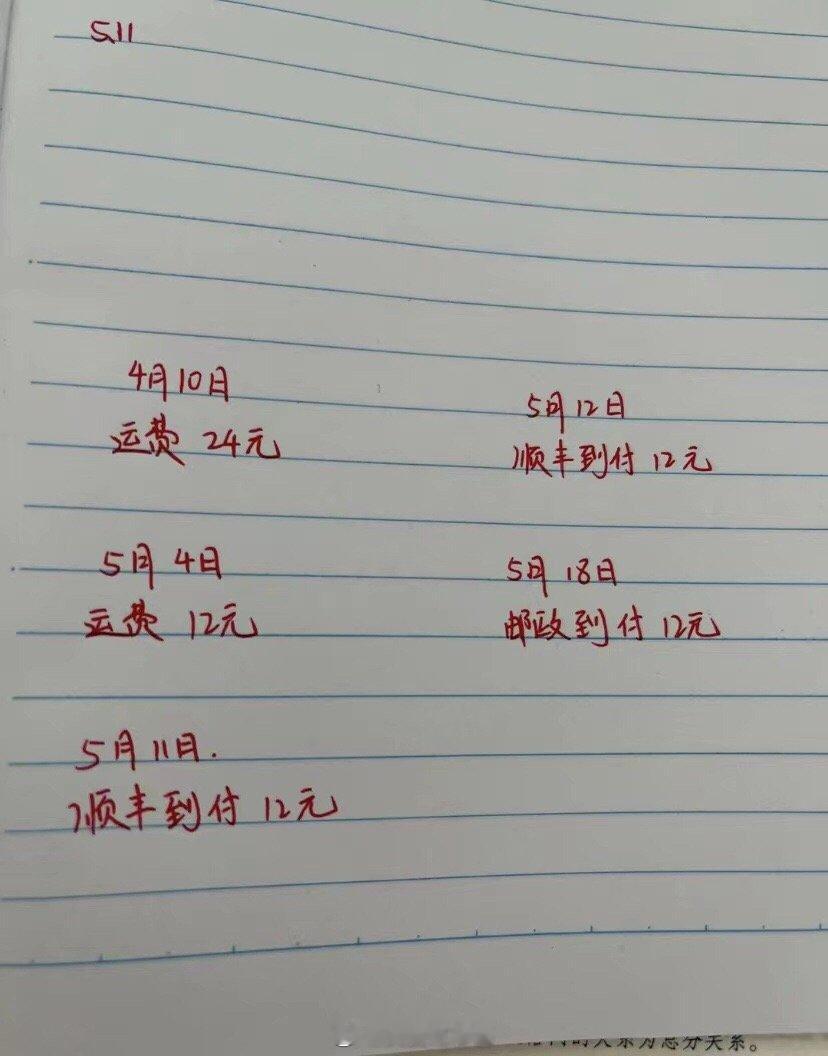 5.11
4月10日
运费 24元
5月4日
运费 12元
5月11日.
顺丰到付 12元
5月12日
顺丰到付 12元
5月18日
邮政到付 12元
关系为总分关系。